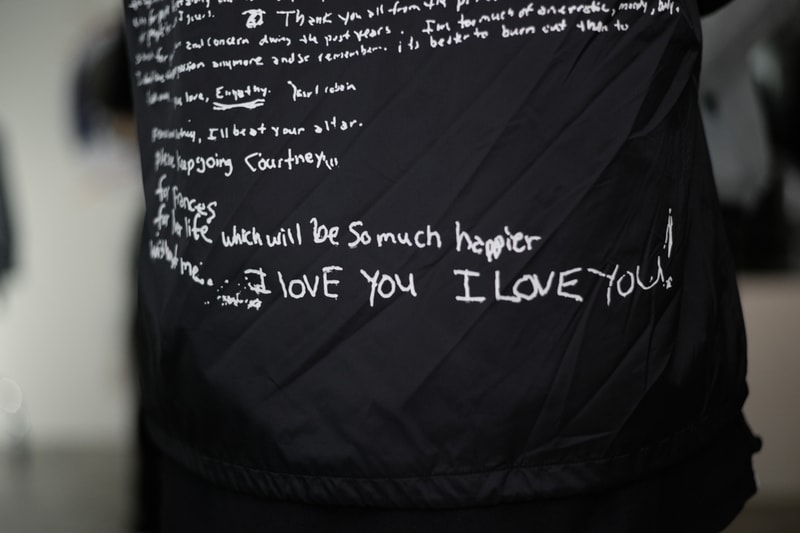 Thank you all from the
and concern during the past years. I'm too much of an erratic, moody, baby.
passion anymore and so remember. it's better to burn out then to
love, Empathy. Kurt cobain
I'll be at your altar.
please keep going Courtney,
for Frances
for her life which will be So much happier
without me... I LOVE YOU I LOVE YOU!